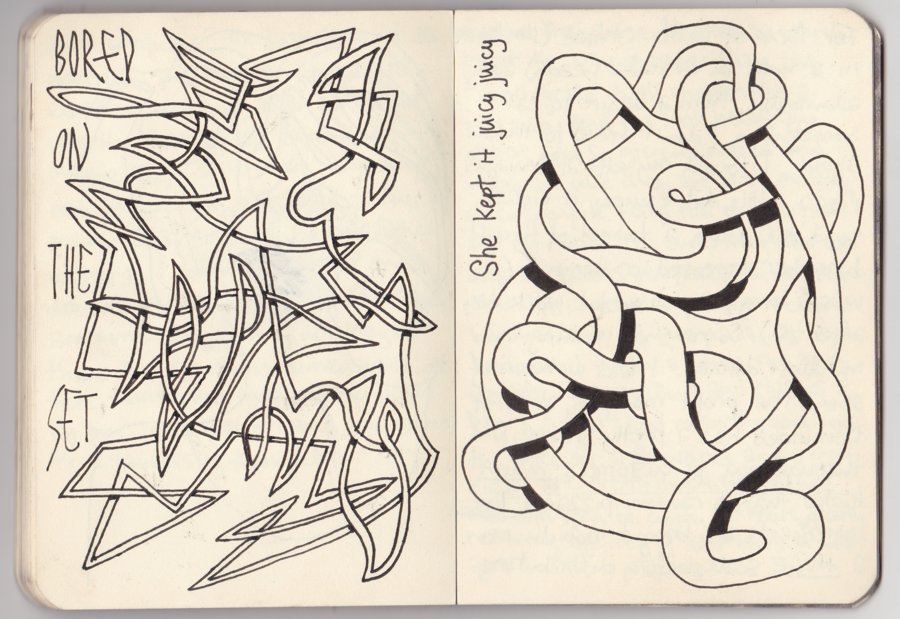 BORED
ON
THE
SET
She kept it juicy juicy